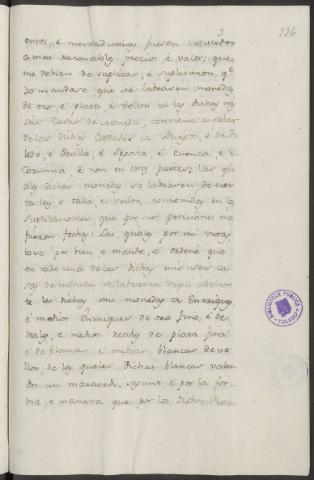 3
236
entos, é mercadurias fuesen reducidos
a mas raxonables precios, é valor; que
me debian de suplicar, é suplicaron, q.e
Io mandase que se labrasen moneda
de oro, é plata é vellon en las dichas mis
seis Casas de moneda, conviene a saber
de las dichas Cibdades de Burgos, é de To
ledo, é Sevilla, é Segovia, é Cuenca, é la
Coruña, é non en otras partes; las qu
ales dichas monedas se labrasen de cier
ta ley, é talla, é valor, contenida en las
suplicaciones que por sus peticiones me
fueron fechas: Las quales por mi vistas
tove por bien, é mandé, é ordené que
en cada una de las dichas mis seis ca
sas de moneda se labrasen de aqui adelan
te las dichas mis monedas de Enriques,
é medios Enriques de oro fino, é de
reales, é medios reales de plata fina
é de blancas, é medias blancas de ve
llon, de las quales dichas blancas valan
dos un maravedi, segunt é por la for
ma, é manera que por los dichos Procu
BIBLIOTECA PUBLICA
TOLEDO